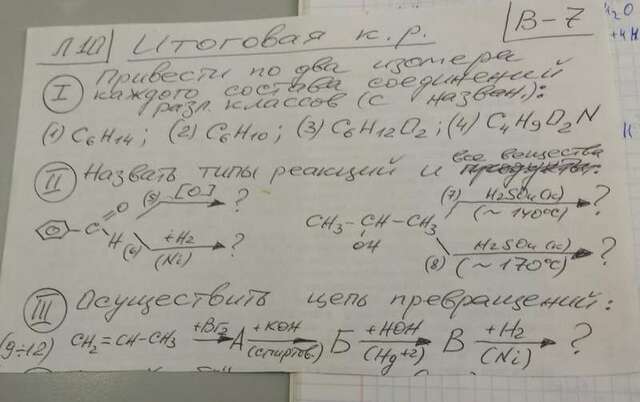 Л10 Итоговая к.р. В-7
I Привести по два изомера
каждого состава соединений
разл. классов (с назван.):
(1) C6H14; (2) C6H10; (3) C6H12O2; (4) C4H9O2N
II Назвать типы реакций и все вещества
(5) [O] ?
C O H
(6) +H2 (Ni) ?
CH3-CH-CH3
OH
(7) H2SO4(к) (~140°C) ?
(8) H2SO4(к) (~170°C) ?
III Осуществить цепь превращений:
(9÷12) CH2=CH-CH3 +Br2 А +KOH (спиртов.) Б +HOH (Hg+2) В +H2 (Ni) ?
H2O
+4H